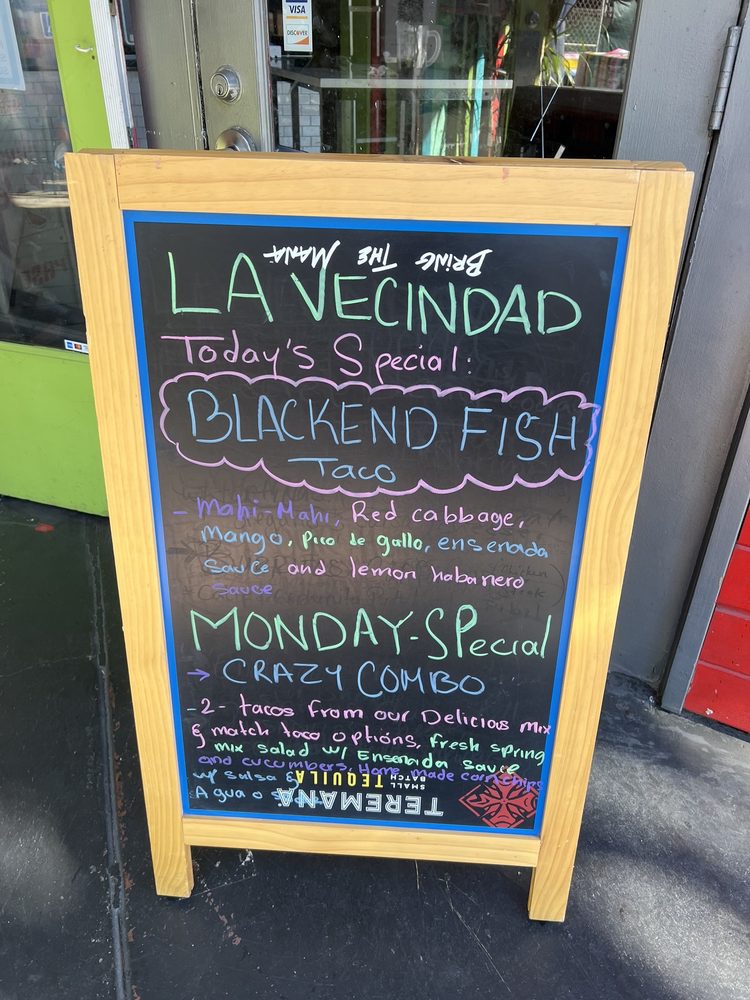 VISA
DISCOVER
BRING THE MANA
LA VECINDAD
Today's Special:
BLACKEND FISH
Taco
- Mahi-Mahi, Red cabbage,
Mango, pico de gallo, ensenada
sauce and lemon habanero
sauce
MONDAY-SPecial
→ CRAZY COMBO
-2- tacos from our Delicious mix
& match taco options, fresh spring
mix salad w/ Ensenada sauce
and cucumbers, Home made corn chips
w/ salsa &
Agua o
TEREMANA
SMALL BATCH TEQUILA